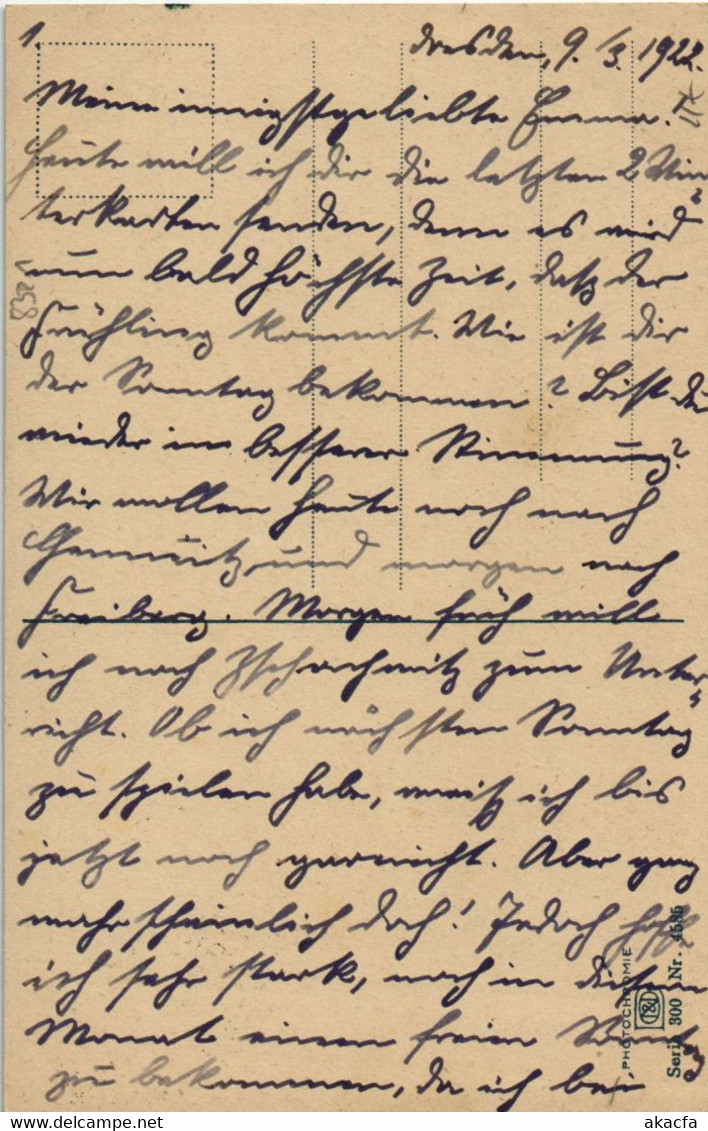 1.
Dresden, 9./3. 1922.
Meine innigstgeliebte Emma!
Heute will ich dir die letzten 2 Win-
terkarten senden, denn es wird
nun bald höchste Zeit, daß der
Frühling kommt. Wie ist dir
der Sonntag bekommen? Bist du
wieder in besserer Stimmung?
Wir wollen heute noch nach
Chemnitz und morgen nach
Freiberg. Morgen früh will
ich nach Zschachwitz zum Unter-
richt. Ob ich nächsten Sonntag
zu spielen habe, weiß ich bis
jetzt noch garnicht. Aber ganz
wahrscheinlich doch! Jedoch hoffe
ich sehr stark, noch in diesem
Monat einen freien Sonntag
zu bekommen, da ich bei
PHOTOCHROMIE
Serie 300 Nr. 4585
akacfa